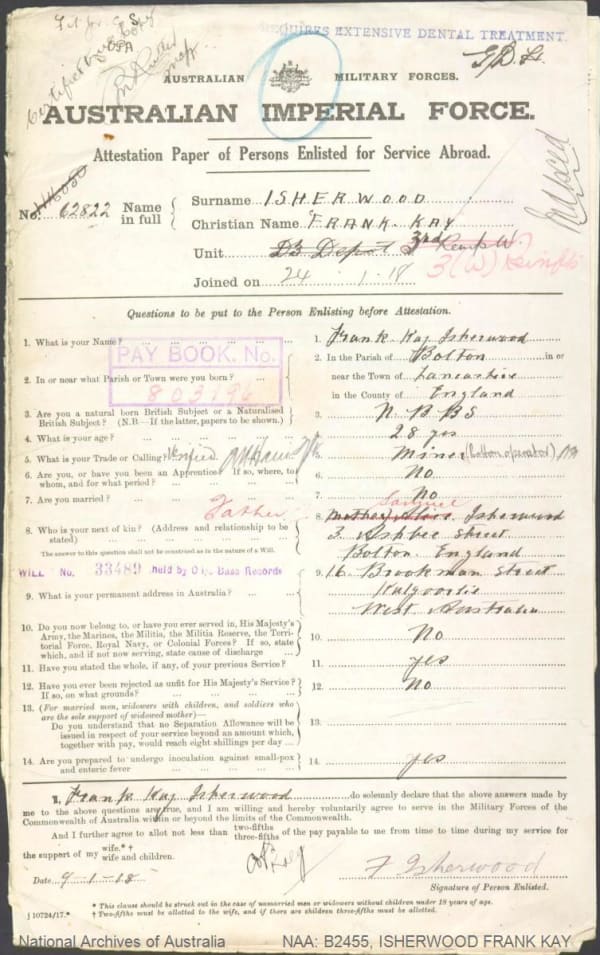 REQUIRES EXTENSIVE DENTAL TREATMENT.
AUSTRALIAN MILITARY FORCES.
AUSTRALIAN IMPERIAL FORCE.
Attestation Paper of Persons Enlisted for Service Abroad.
No. 62822 Name in full
Surname ISHERWOOD
Christian Name FRANK KAY
Unit D3 Depot 3rd Reinfs W. 3(W) Reinfts
Joined on 24 1. 18
Questions to be put to the Person Enlisting before Attestation.
1. What is your Name? ... 1. Frank Kay Isherwood
PAY BOOK. No.
803796
2. In or near what Parish or Town were you born? ... 2. In the Parish of Bolton in or
near the Town of Lancashire
in the County of England
3. Are you a natural born British Subject or a Naturalised British Subject? (N.B.—If the latter, papers to be shown.) 3. N. B. B S
4. What is your age? ... 4. 28 yrs
5. What is your Trade or Calling? 5. Miner
6. Are you, or have you been an Apprentice? If so, where, to whom, and for what period? ... 6. No
7. Are you married? ... 7. No
8. Who is your next of kin? (Address and relationship to be stated) Father 8. Mother Alice Samuel Isherwood
The answer to this question shall not be construed as in the nature of a Will.
3 Ashbee Street
Bolton England
WILL No. 33489 held by O i/c Base Records
9. What is your permanent address in Australia? ... 9. 16 Brookman Street
Kalgoorlie
West Australia
10. Do you now belong to, or have you ever served in, His Majesty's Army, the Marines, the Militia, the Militia Reserve, the Territorial Force, Royal Navy, or Colonial Forces? If so, state which, and if not now serving, state cause of discharge ... 10. No
11. Have you stated the whole, if any, of your previous Service? 11. yes
12. Have you ever been rejected as unfit for His Majesty's Service? If so, on what grounds? ... 12. No
13. (For married men, widowers with children, and soldiers who are the sole support of widowed mother)—
Do you understand that no Separation Allowance will be issued in respect of your service beyond an amount which, together with pay, would reach eight shillings per day ... 13.
14. Are you prepared to undergo inoculation against small-pox and enteric fever ... 14. yes
I, Frank Kay Isherwood do solemnly declare that the above answers made by
me to the above questions are true, and I am willing and hereby voluntarily agree to serve in the Military Forces of the
Commonwealth of Australia within or beyond the limits of the Commonwealth.
And I further agree to allot not less than two-fifths three-fifths of the pay payable to me from time to time during my service for
the support of my wife.*† wife and children.
F Isherwood
Date 9-1-18
Signature of Person Enlisted.
* This clause should be struck out in the case of unmarried men or widowers without children under 18 years of age.
† Two-fifths must be allotted to the wife, and if there are children three-fifths must be allotted.
j 10724/17.*
National Archives of Australia NAA: B2455, ISHERWOOD FRANK KAY